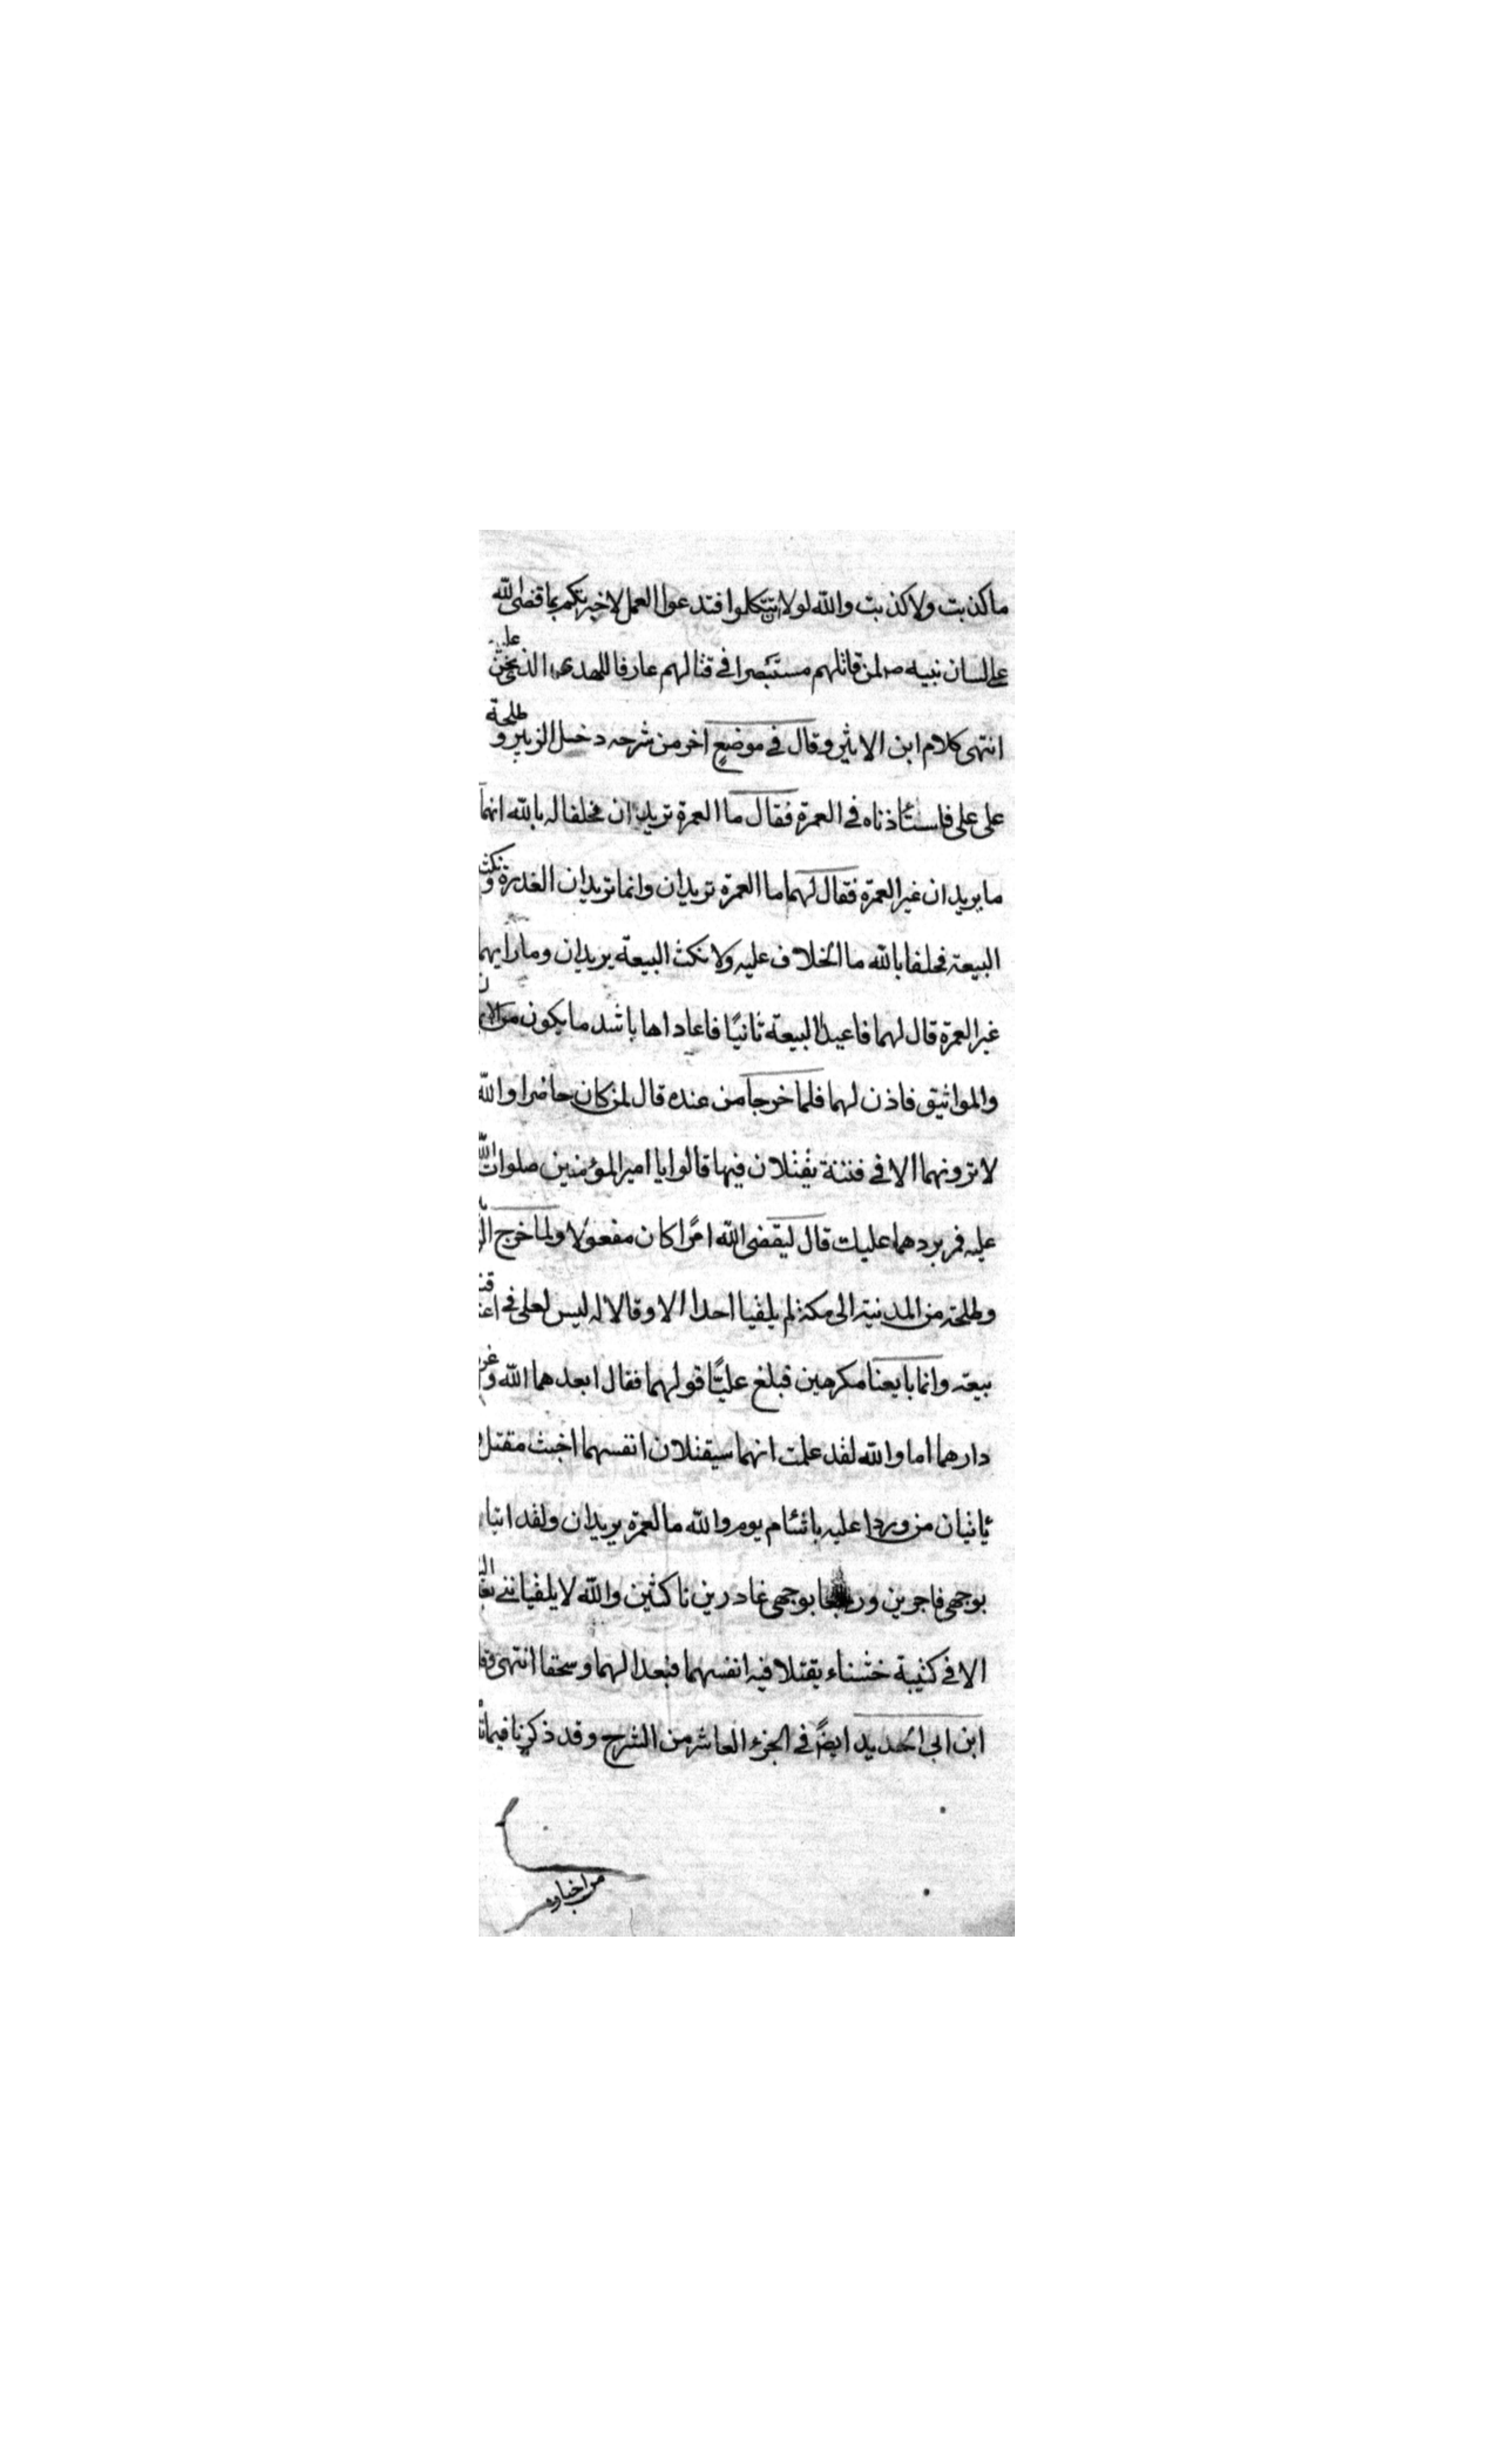 ما كذبت ولا كذبت والله لولا ان تتكلوا فتدعوا العمل لاخبرتكم بما قضى الله
على لسان نبيه ص لمن قاتلهم مستبصرا فى قتالهم عارفا للهدى الذى نحن عليه
انتهى كلام ابن الاثير وقال فى موضع اخر من شرحه دخل الزبير و طلحة
على على فاستأذناه فى العمرة فقال ما العمرة تريدان فحلفا له بالله انهما
ما يريدان غير العمرة فقال لهما ما العمرة تريدان وانما تريدان الغدرة ونكث
البيعة فحلفا بالله ما الخلاف عليه ولا نكث البيعة يريدان وما رايهما
غير العمرة قال لهما فاعيدا البيعة ثانيًا فاعاداها باشد ما يكون من
والمواثيق فاذن لهما فلما خرجا من عنده قال لمن كان حاضرا والله
لا ترونهما الا فى فتنة يقتلان فيها قالوا يا امير المؤمنين صلوات الله
عليه فمر بردهما عليك قال ليقضى الله امرًا كان مفعولا ولما خرج
وطلحة من المدينة الى مكة لم يلقيا احدا الا وقالا له ليس لعلى فى
بيعة وانما بايعنا مكرهين فبلغ عليًا قولهما فقال ابعدهما الله و
دارهما اما والله لقد علمت انهما سيقتلان انفسهما اخبث مقتل
يأتيان من وردا عليه باشئام يوم والله ما العمرة يريدان ولقد اتيا
بوجهى فاجرين و بوجهى غادرين ناكثين والله لا يلقياننى
الا فى كتيبة خشناء يقتلا فيه انفسهما فبعدا لهما وسحقا انتهى
ابن ابى الحديد ايضًا فى الجزء العاشر من الشرح وقد ذكرنا فيما
من اخباره